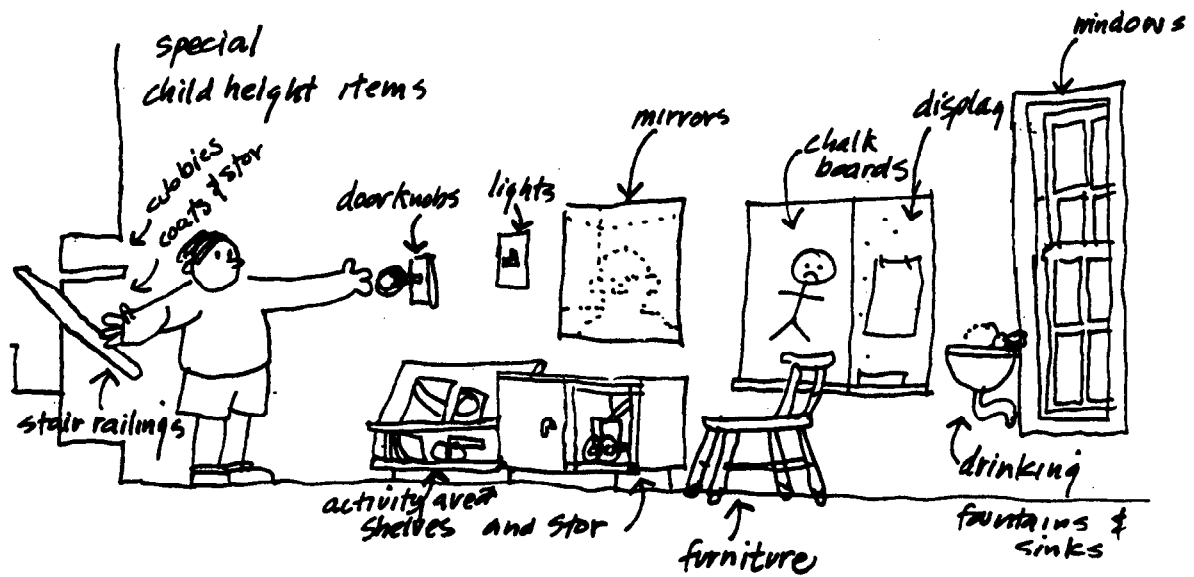 special
child height items
cubbies
coats & stor
doorknobs
lights
mirrors
chalk
boards
display
windows
stair railings
activity area
shelves and stor
furniture
drinking
fountains &
sinks